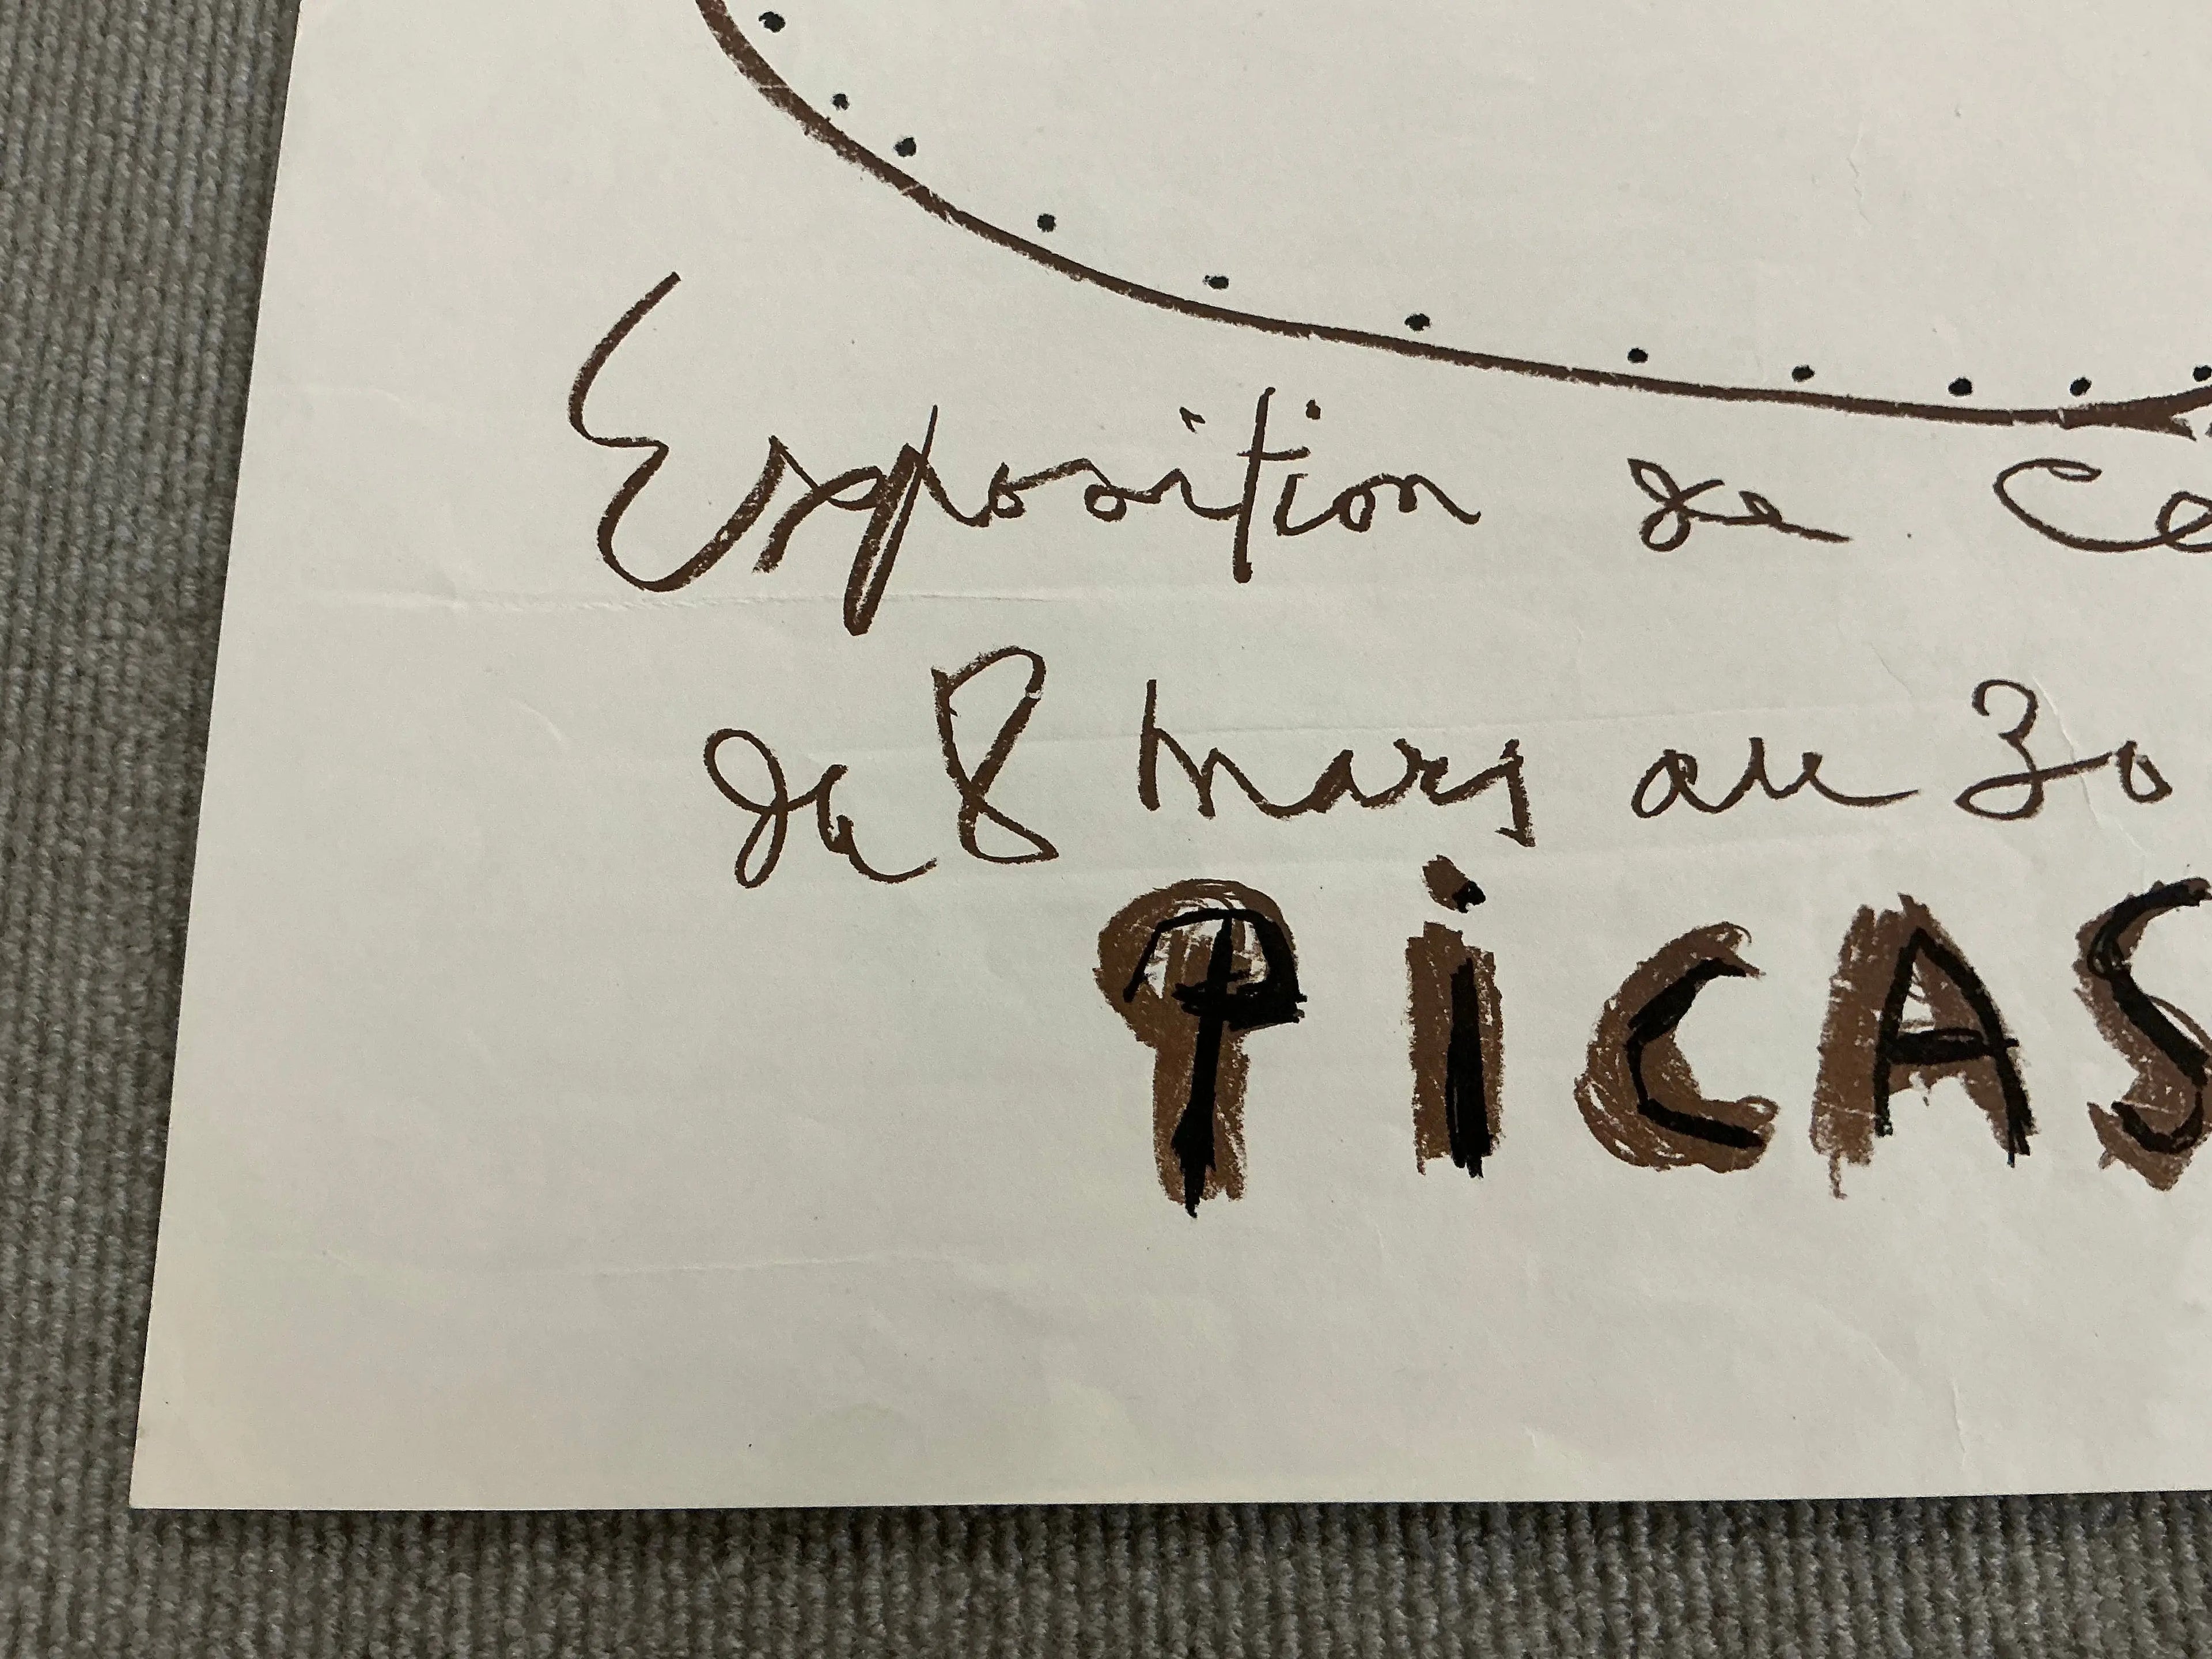 Exposition de Ce
du 8 mars au 30
PiCAS